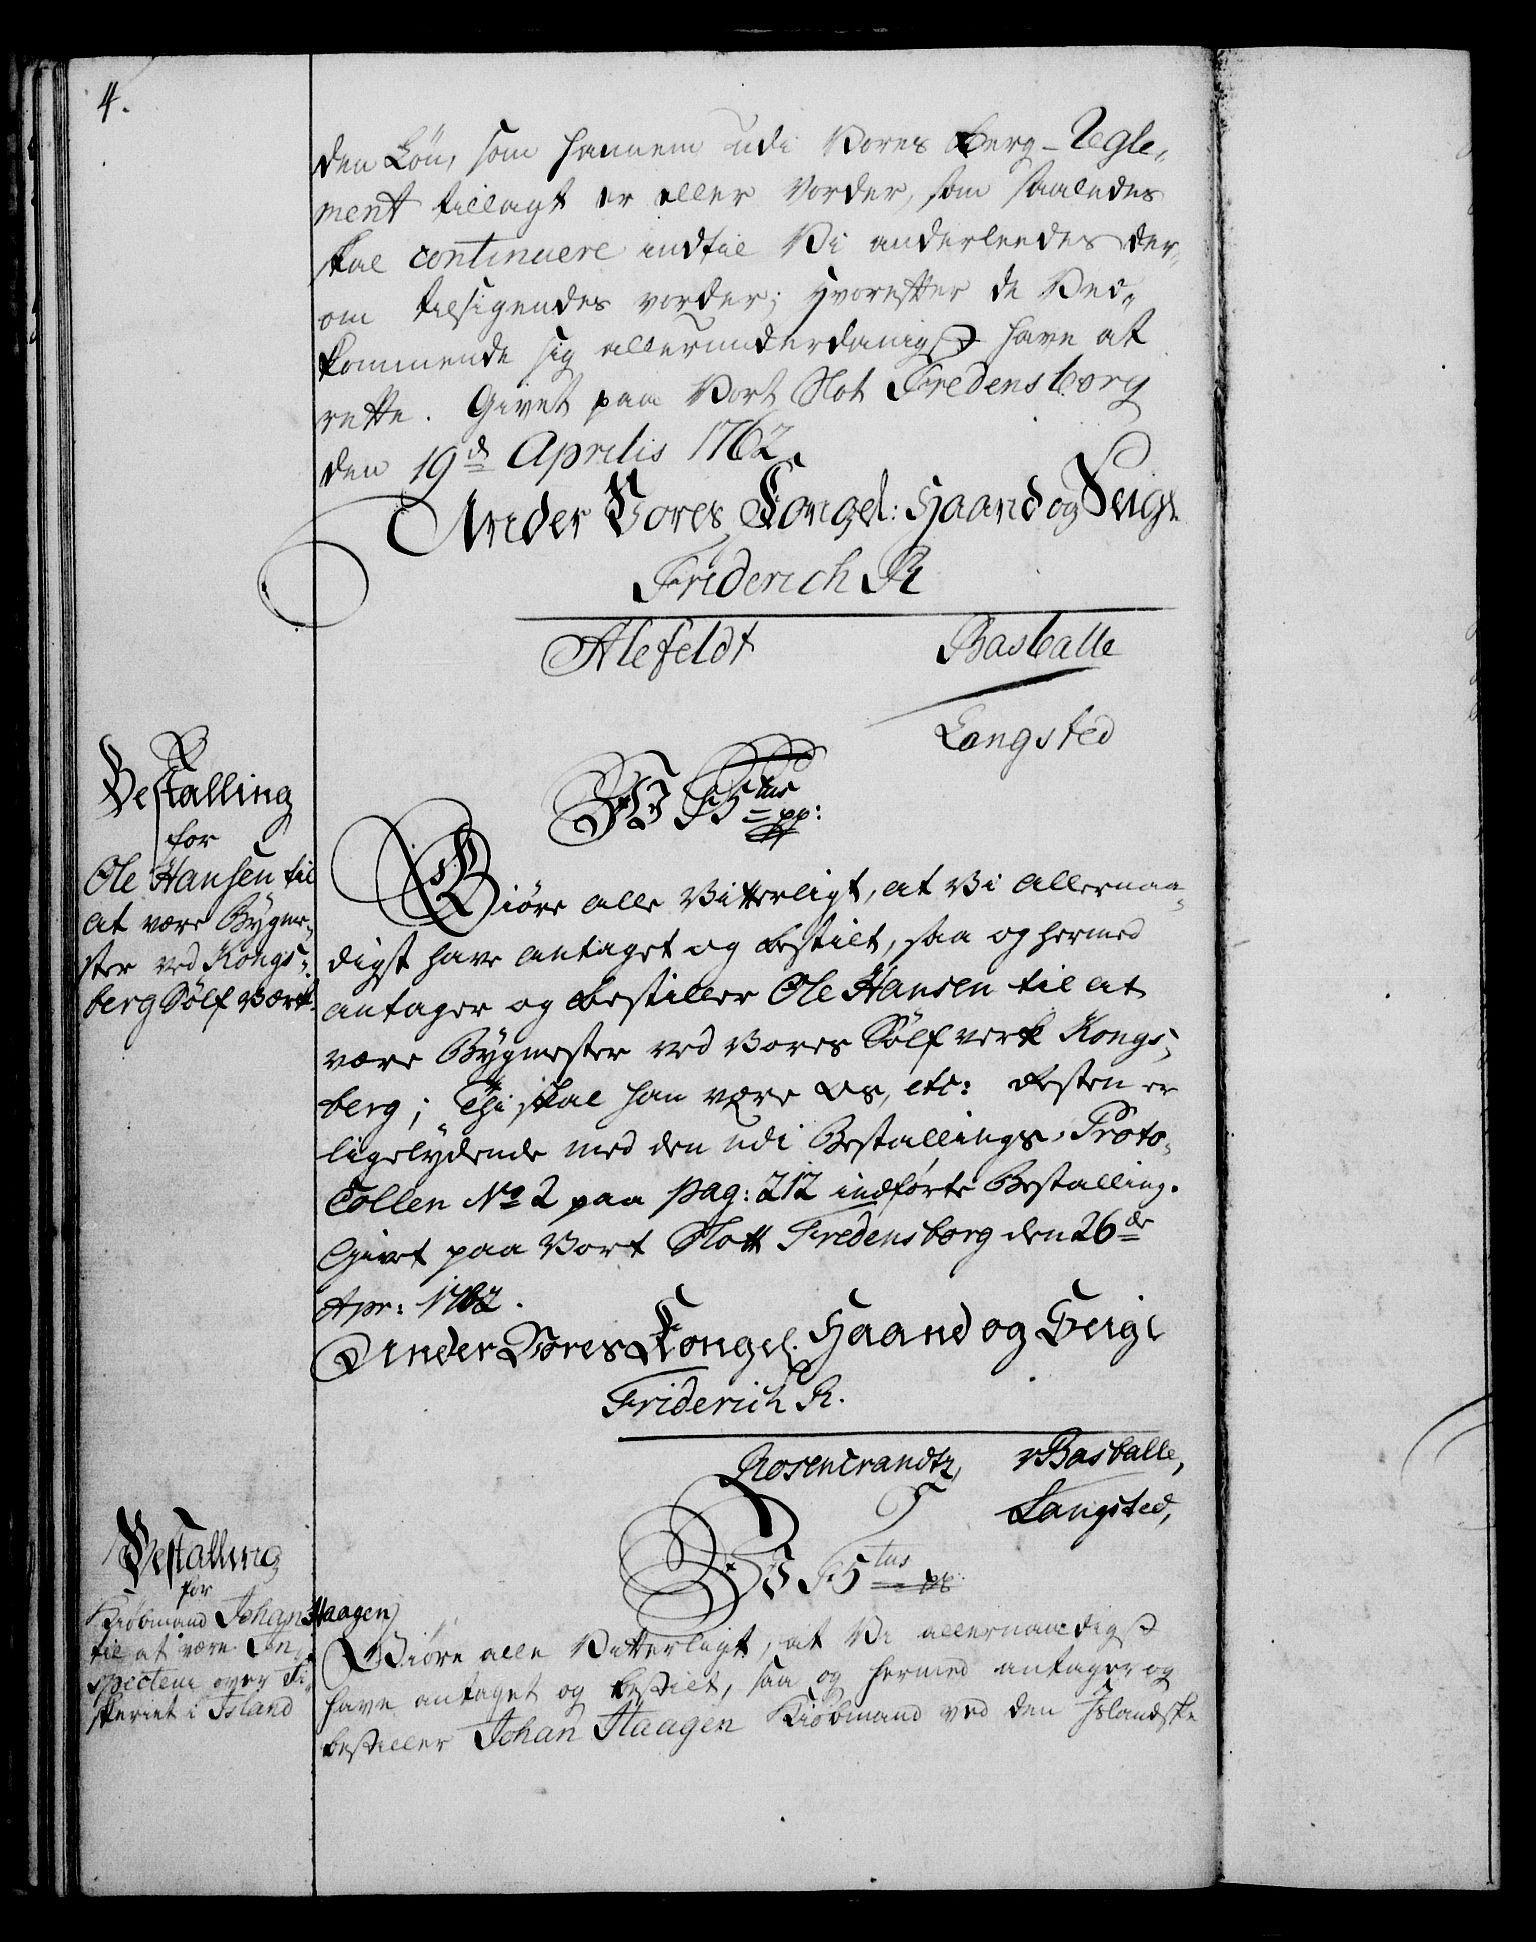 4.
den Løn, som hannem udi Vores Berg-Regle,
ment tillagt er eller vorder, som saaledes
skal continuere indtil Vi anderleedes der,,
om tilsigendes vorder; hvorefter de Ved,,
kommende sig allerunderdanigst have at
rette. Givet paa Vort Slot Fredensborg
den 19d Aprilis 1762.
Under Vores Kongel: Haand og Seigl
Friderich R
Alefeldt Basballe
Langsted
Bestalling
for
Ole Hansen til
at være Bygme,,
ster ved Kongs,,
berg Sølf Værk.
Vi F 5tus pp:
Giøre alle Vitterligt, at Vi allernaa,,
digst have antaget og bestilt, saa og hermed
antager og bestiller Ole Hansen til at
være Bygmester ved Vores Sølfverk Kongs,,
berg; Thi skal han være os, etc: Resten er
ligelydende med den udi Bestallings-Proto,,
Collen No 2 paa pag: 212 indførte Bestalling.
Givet paa Vort Slott Fredensborg den 26de
Apr: 1762.
Under Vores Kongel. Haand og Seigl
Friderich R.
Rosencrandtz, Basballe,
Langsted,
Bestalling
for
Kiøbmand Johan Haagen
til at være In,,
specteur over Fi,,
skeriet i Island
Vi F 5tus pp
Giøre alle Vitterligt, at Vi allernaadigst
have antaget og bestilt, saa og hermed antager og
bestiller Johan Haagen Kiøbmand ved den Islandske